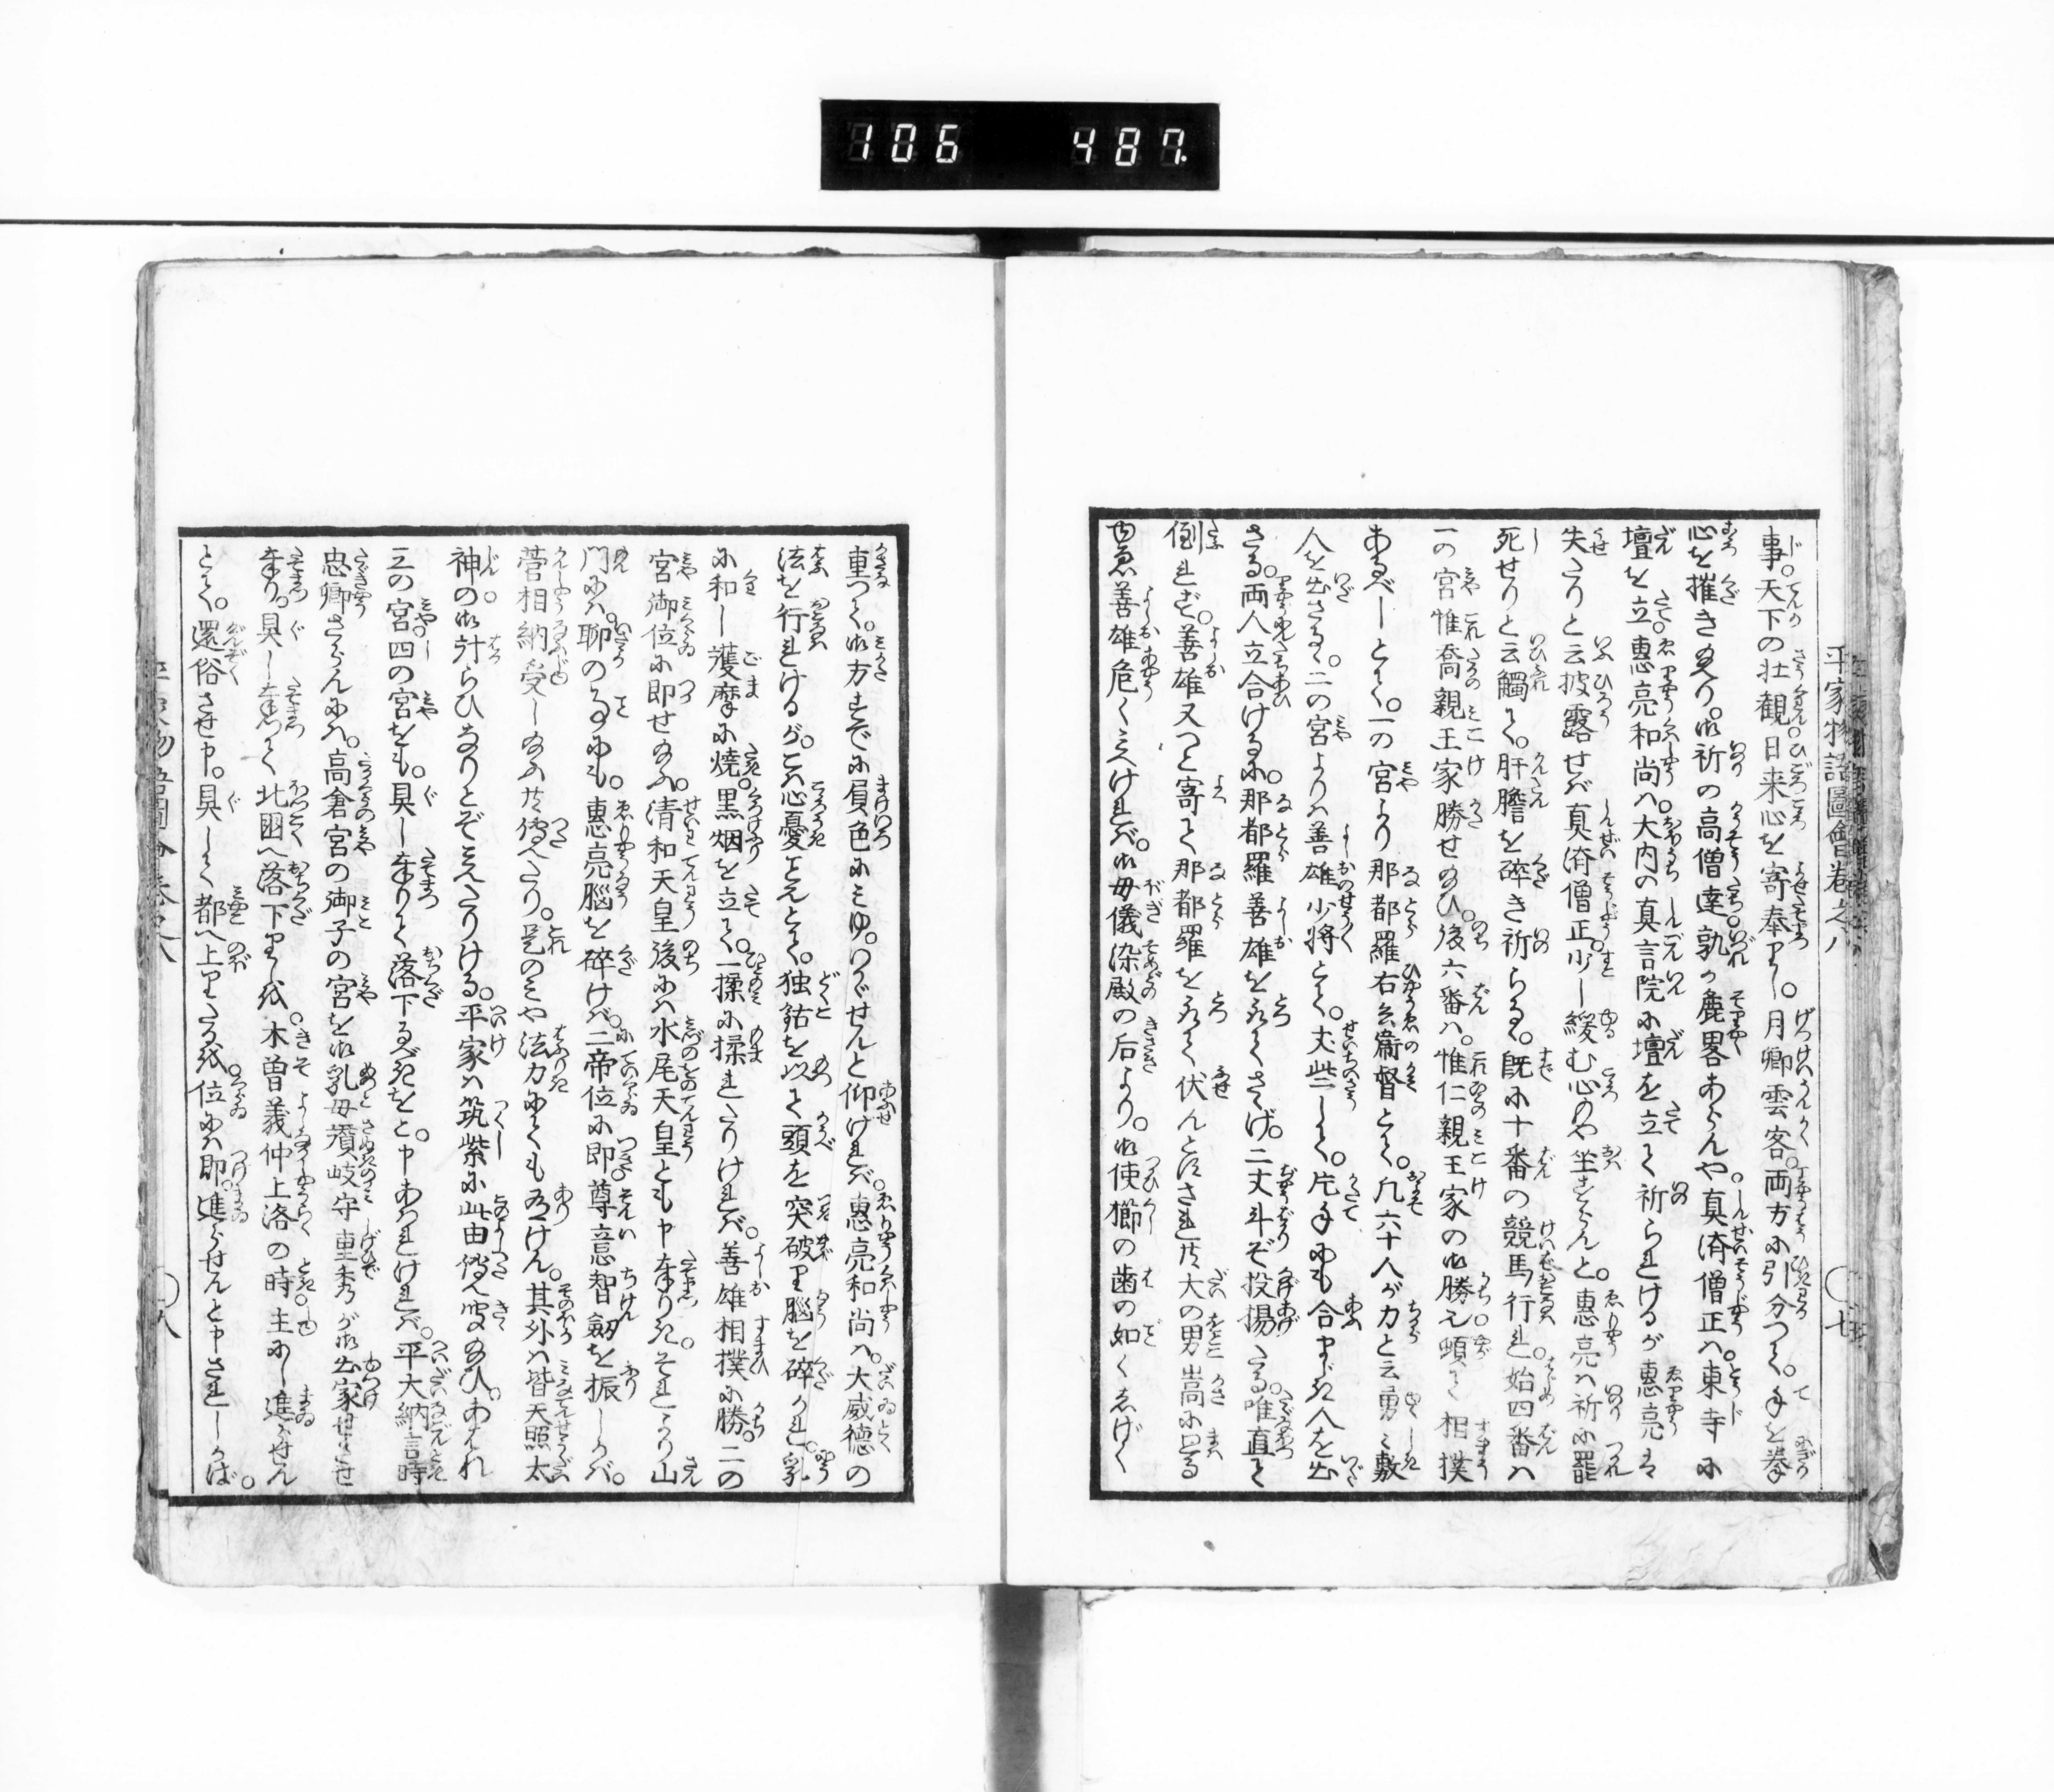 106 487
平家物語圖會巻之八
七
事。天下の壮観。日来心を寄奉りし。月卿雲客。両方に引分つて。手を拳
心を摧き給へり。御祈の高僧達孰か麁畧あらんや。真済僧正ハ。東寺に
壇を立。恵亮和尚ハ。大内の真言院に壇を立て祈られけるが恵亮は
失たりと云披露せバ真済僧正。少し緩む心のや坐すらんと。恵亮ハ祈に罷
死せりと云觸て。肝膽を碎き祈らる。既に十番の競馬行れ。始四番ハ
一の宮惟喬親王家勝せ給ひ。後六番ハ。惟仁親王家の御勝也。頓て相撲
あるべしとて。一の宮より那都羅右兵衞督とて。凡六十人が力と云勇々敷
人を出さる。二の宮よりハ善雄少將とて。丈些しくて。片手にも合まじき人を出
さる。両人立合けるに。那都羅善雄を取てさゝげ。二丈斗ぞ投揚たる。唯直て
倒れず。善雄又つと寄て那都羅を取て伏んとはされ共大の男嵩に回る
ゆゑ善雄危く見へけれバ。御母儀染殿の后より。御使櫛の歯の如くゑげく
重つて。御方すでに負色にミゆ。いかゞせんと仰けれバ。恵亮和尚ハ。大威徳の
法を行れけるが。こハ心憂とて。独鈷を以て頭を突破り腦を碎かれ。乳
に和し護摩に焼。黒烟を立て。一揉に揉れたりけれバ。善雄相撲に勝。二の
宮御位に即せ給ふ。清和天皇後にハ水尾天皇とも申奉りき。それより山
門にハ。聊のる事にも。恵亮腦を碎けバ。二帝位に即。尊意智劔を振しかバ。
菅相納受し給ふ共傳へたり。是のミや法力にても有けん。其外ハ皆天照太
神の御計らひなりとぞ見へたりける。平家ハ筑紫に此由傳へ聞給ひ。あはれ
三の宮。四の宮をも。具し奉りて落下るべきをと。申あはれけれバ。平大納言時
忠卿さらんにハ。高倉宮の御子の宮を御乳母讃岐守重秀が御出家せさせ
奉り。具し奉つて北国へ落下りしを。木曽義仲上洛の時。主にし進らせん
とて。還俗させ申。具して都へ上りたるを。位にハ即。進らせんと申されしかば。
八